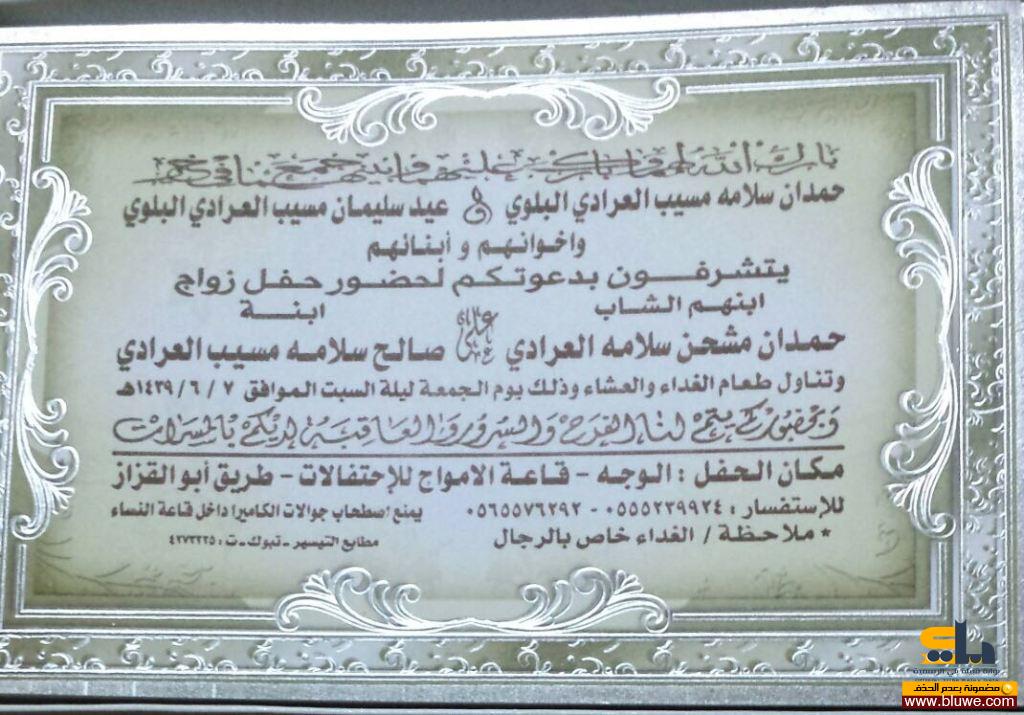 بارك الله لهما وبارك عليهما وجمع بينهما في خير
حمدان سلامه مسيب العرادي البلوي و عيد سليمان مسيب العرادي البلوي
واخوانهم و أبنائهم
يتشرفون بدعوتكم لحضور حفل زواج
ابنهم الشاب ابنة
حمدان مشحن سلامه العرادي على صالح سلامه مسيب العرادي
وتناول طعام الغداء والعشاء وذلك يوم الجمعة ليلة السبت الموافق ٧ / ٦ / ١٤٣٩هـ
وبحضوركم يتم لنا الفرح والسرور والعاقبة لديكم بالمسرات
مكان الحفل : الوجه - قاعة الامواج للإحتفالات - طريق أبو القزاز
للإستفسار : ٠٥٥٥٢٣٩٩٢٤ - ٠٥٦٥٥٧٦٢٩٢ يمنع اصطحاب جوالات الكاميرا داخل قاعة النساء
* ملاحظة / الغداء خاص بالرجال مطابع التيسير - تبوك - ت : ٤٢٧٣٢٢٥
بلي
مضمونة بعدم الحذف
www.bluwe.com